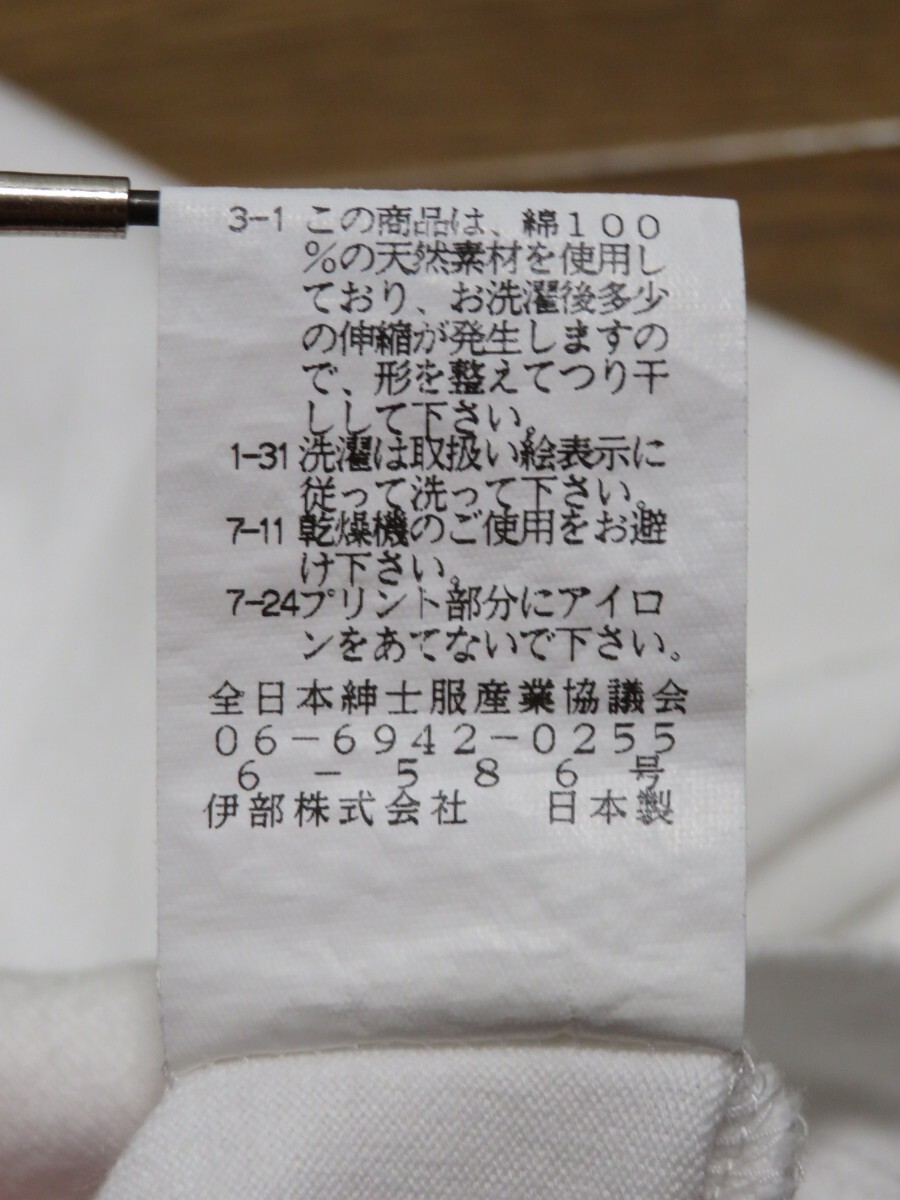 3-1 この商品は、綿100
%の天然素材を使用し
ており、お洗濯後多少
の伸縮が発生しますの
で、形を整えてつり干
しして下さい。
1-31 洗濯は取扱い絵表示に
従って洗って下さい。
7-11 乾燥機のご使用をお避
け下さい。
7-24 プリント部分にアイロ
ンをあてないで下さい。
全日本紳士服産業協議会
06-6942-0255
6-586号
伊部株式会社 日本製